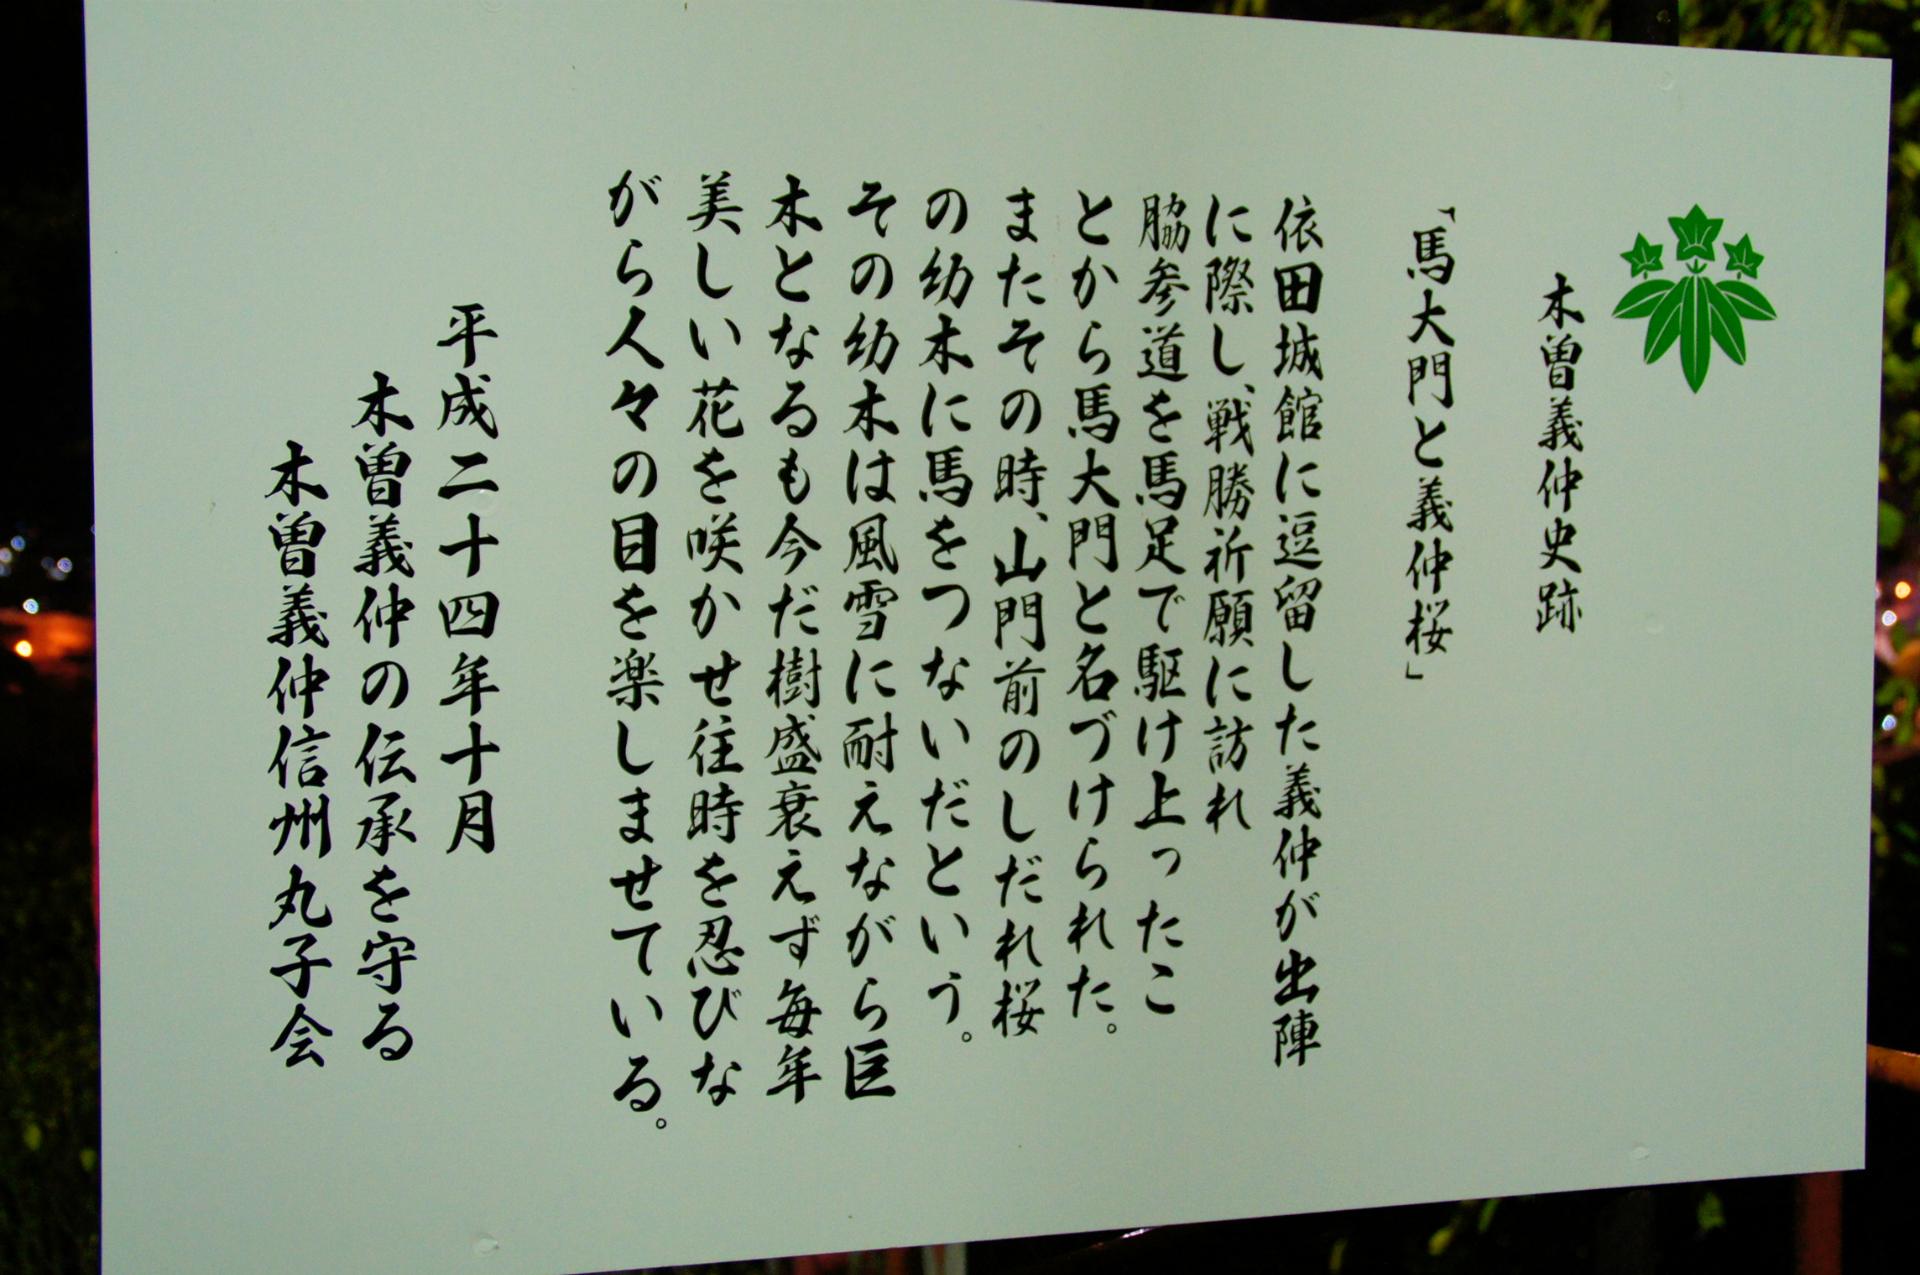 木曽義仲史跡
「馬大門と義仲桜」
依田城館に逗留した義仲が出陣
に際し、戦勝祈願に訪れ
脇参道を馬足で駆け上ったこ
とから馬大門と名づけられた。
またその時、山門前のしだれ桜
の幼木に馬をつないだという。
その幼木は風雪に耐えながら巨
木となるも今だ樹盛衰えず毎年
美しい花を咲かせ往時を忍びな
がら人々の目を楽しませている。
平成二十四年十月
木曽義仲の伝承を守る
木曽義仲信州丸子会